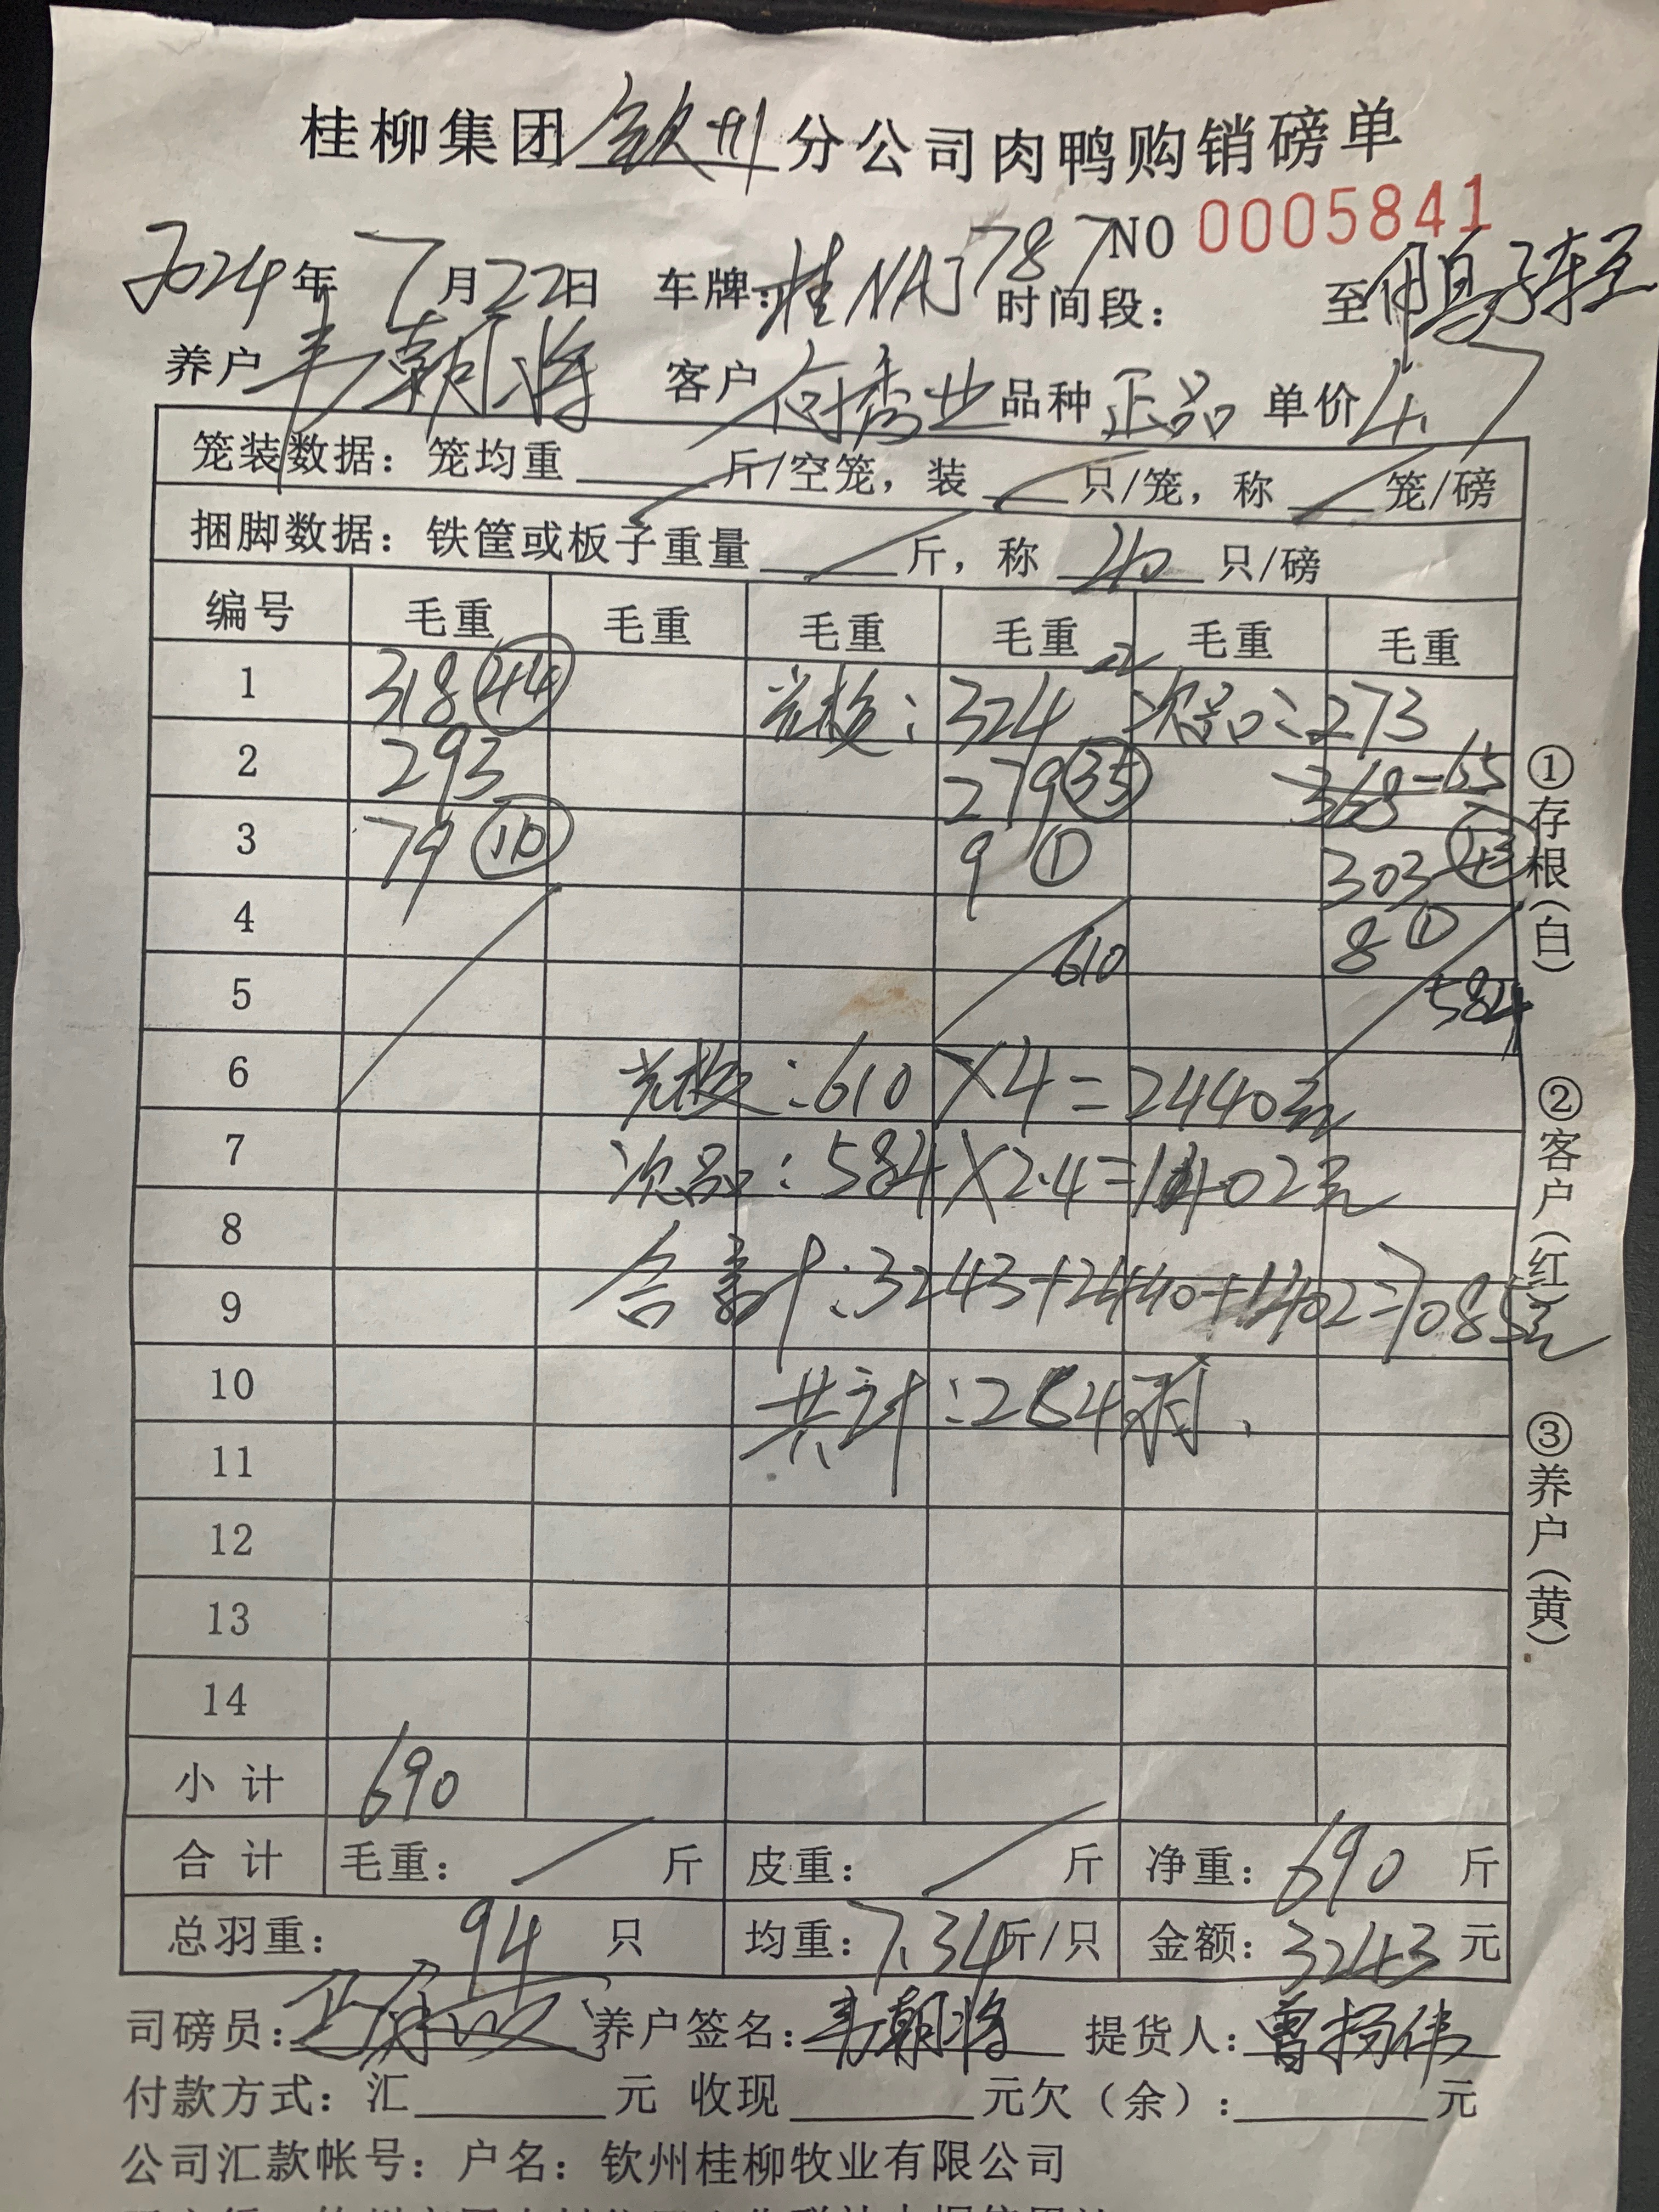 桂柳集团钦州分公司肉鸭购销磅单
NO 0005841
2024年7月22日 车牌:桂NAJ787 时间段: 至 鸭子轻
养户 韦朝将 客户 何秀业 品种 正品 单价 4.7
笼装数据:笼均重 斤/空笼,装 只/笼,称 笼/磅
捆脚数据:铁筐或板子重量 斤,称 40 只/磅
编号 毛重 毛重 毛重 毛重 毛重 毛重
1 318 44 324 次品:273
2 293 279 35 368-65
3 79 10 9 1 303 43
4 610 8 1
5 584
6 :610×4=2440元
7 次品:584×2.4=1402元
8
9 合计:3243+2440+1402=7085元
10 共计:254羽、
11
12
13
14
小计 690
合计 毛重: 斤 皮重: 斤 净重:690 斤
总羽重:94 只 均重:7.34斤/只 金额:3243 元
司磅员: 养户签名:韦朝将 提货人:曾扬伟
付款方式:汇 元 收现 元欠(余): 元
公司汇款帐号:户名:钦州桂柳牧业有限公司
①存根(白)
②客户(红)
③养户(黄)